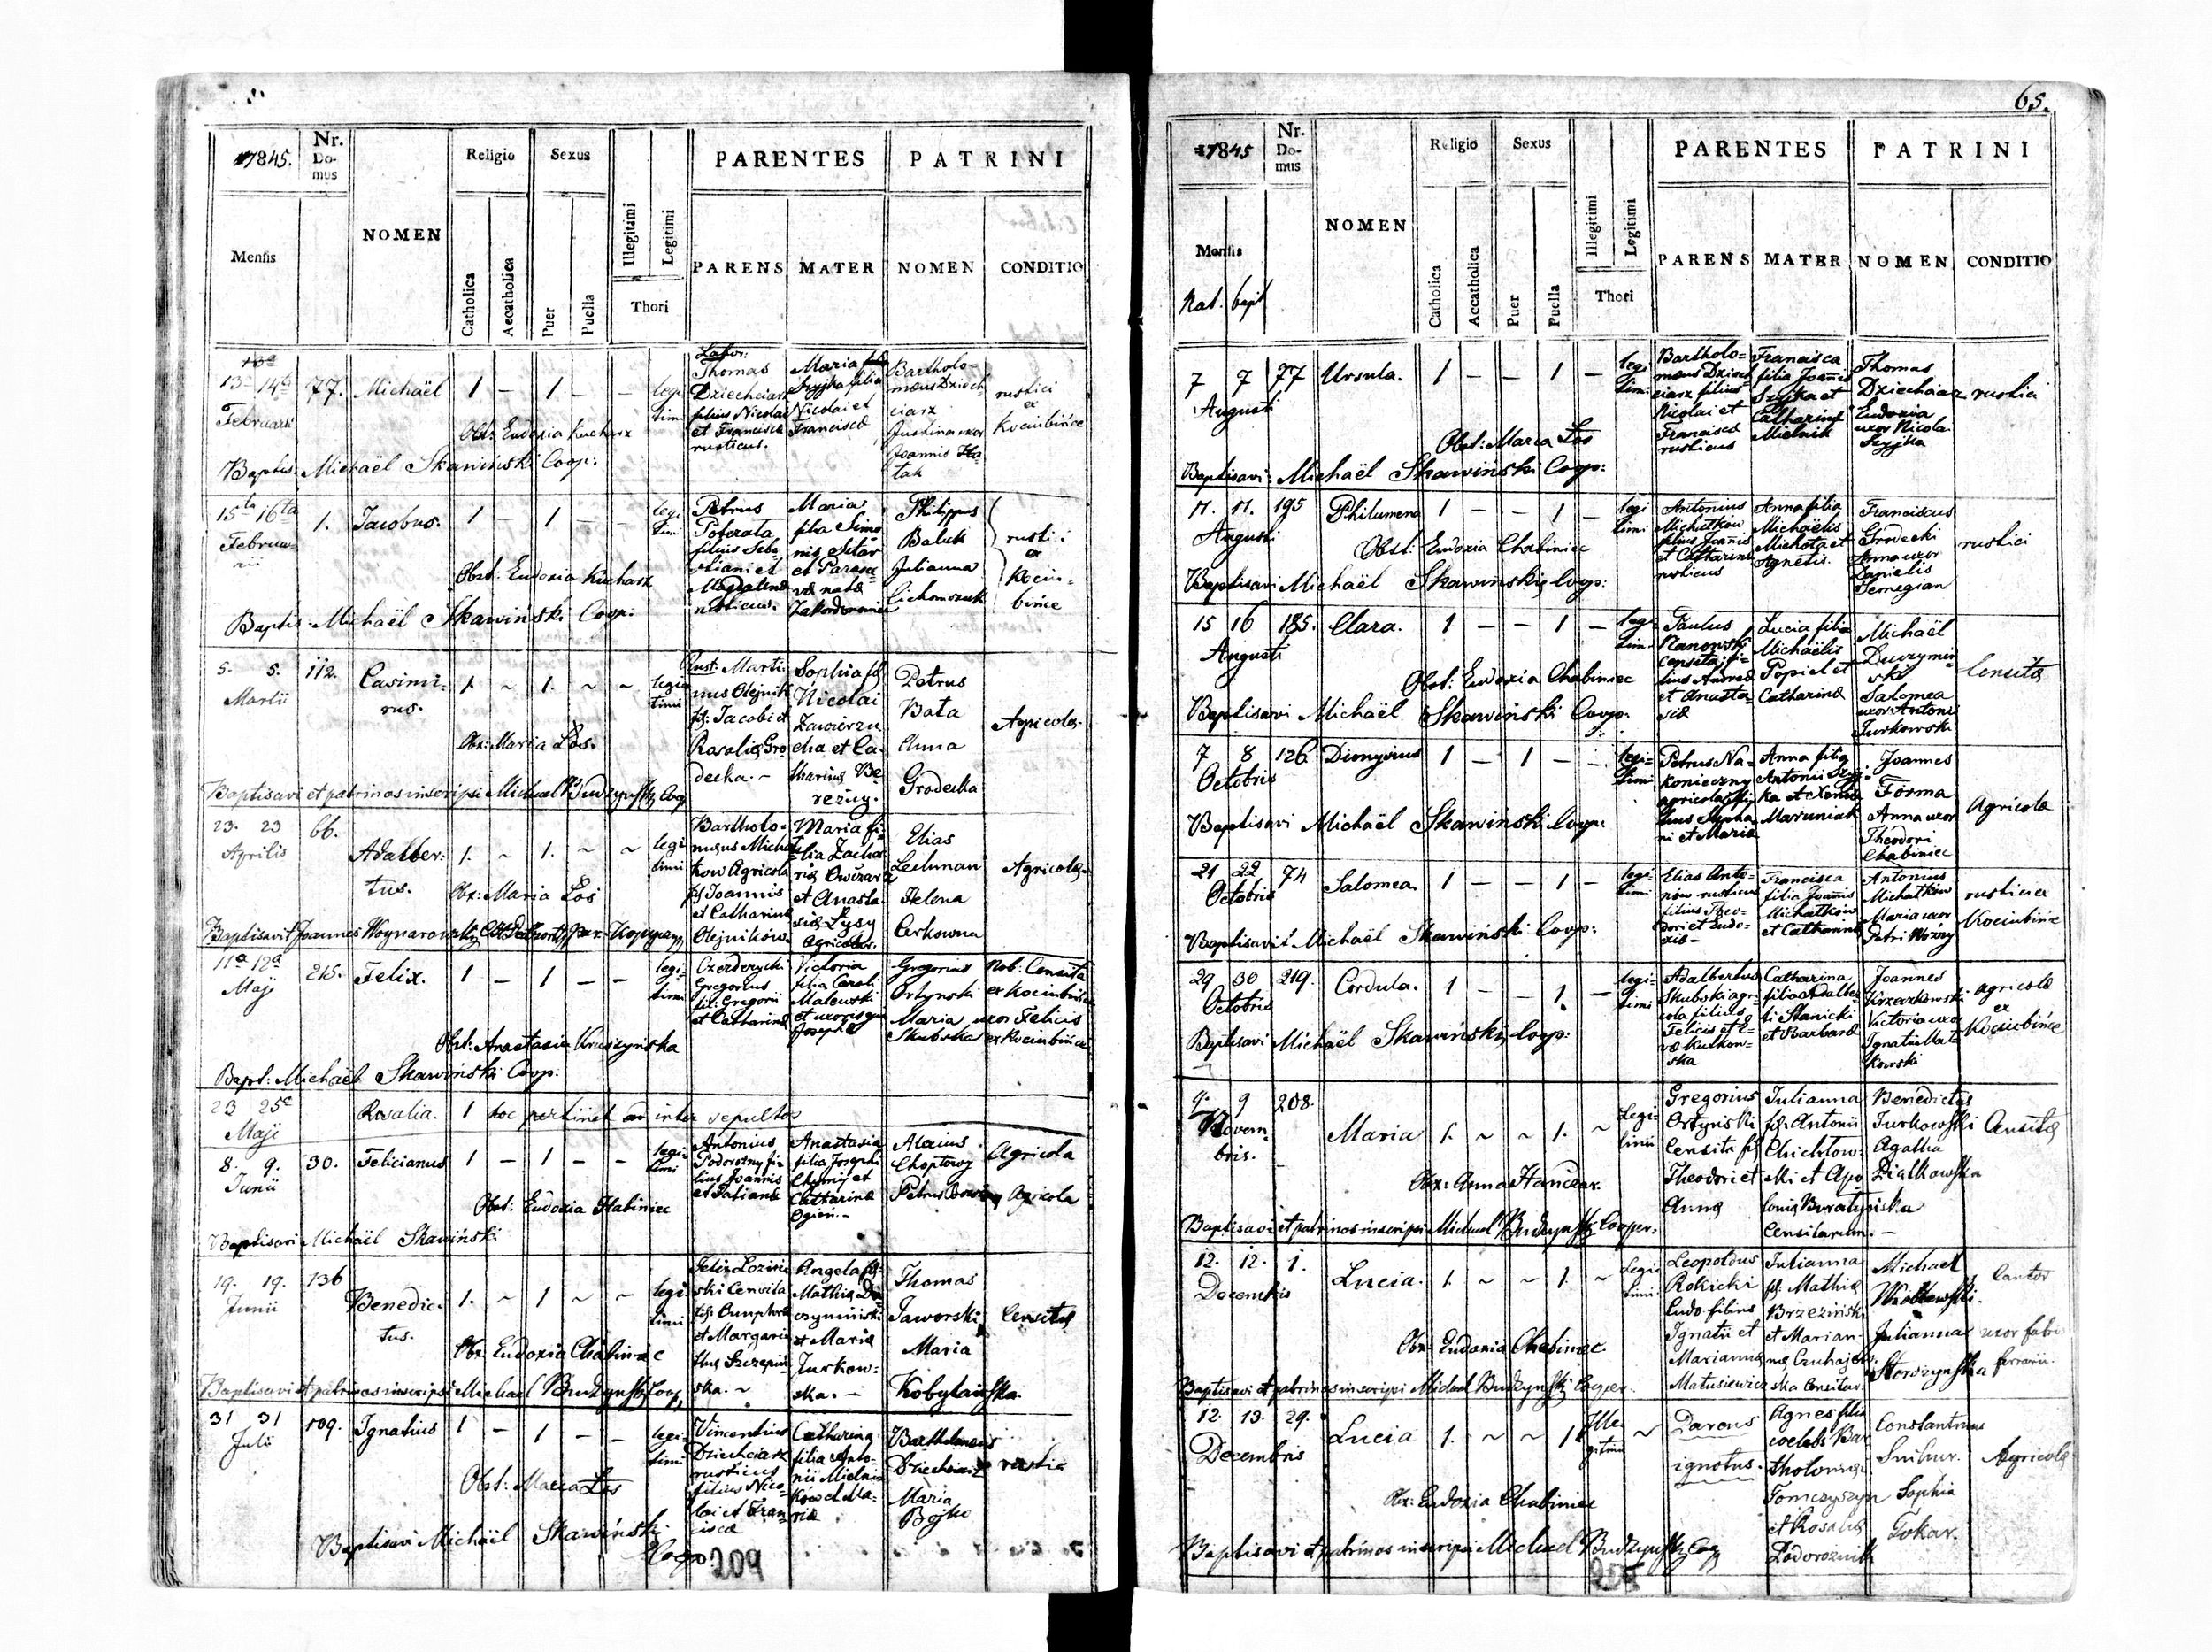 1845.
Nr. Domus
NOMEN
Religio
Sexus
PARENTES
PATRINI
Mensis
Catholica
Accatholica
Puer
Puella
Illegitimi
Legitimi
Thori
PARENS
MATER
NOMEN
CONDITIO
13a 14ta 77. Michaël 1 — 1 — — legi
timi
Februarii
Thomas
Dziechciarz
filius Nicolai
et Francisca
rusticus.
Maria
Szyjka filia
Nicolai et
Francisca
Bartholo-
mæus Dziech
ciarz
Justina uxor
Joannis
rustici
ex
Kociubińce
Obst: Eudoxia Kucharz
Baptis: Michaël Skawiński Coop:
15ta 16ta 1. Jacobus. 1 — 1 — — legi
timi
Februa-
rii
Petrus
filius Seba
stiani et
Magdalena
rusticus.
Maria
filia Simo
nis Sitar
et Parasce
væ nata
Philippus
Baluk
Julianna
rustici
ex
Kociu-
bińce
Obst: Eudoxia Kucharz
Baptis: Michaël Skawiński Coop.
5. 5. 112. Casimi-
rus. 1. ~ 1. ~ ~ legi
timi
Martii
Rust: Marti
nus Olejnik
fil: Jacobi et
Rosalia Gro
decka. ~
Sophia fil
Nicolai
et Ca
tharina Be
rezny.
Petrus
Bata
Anna
Grodecka
Agricola
Obs: Maria Łoś.
Baptisavi et patrinos inscripsi Michael Budzynski Coop
23. 23 66.
Aprilis
Adalber-
tus. 1. ~ 1. ~ ~ legi
timi
Bartholo-
mæus Micha
kow Agricola
fil Joannis
et Catharina
Olejników.
Maria fi-
lia Zacha
ria Owczarz
et Anasta
sia Łysy
Agricolar.
Elias
Lechman
Helena
Cerkowna
Agricola
Obs: Maria Łoś
Baptisavit Joannes Woynarowski
11a 12a 215. Felix. 1 — 1 — — legi
timi
Maji
Gregorius
fil: Gregorii
et Catharina
Victoria
filia Caroli
Malewski
et uxoris ejus
Josepha
Gregorius
Ortynski
Maria uxor Felicis
Skubska
Nob: Censita
ex Kociubińce
ex Kociubińce
Obst: Anastasia Kruszyńska
Bapt: Michaël Skawiński Coop.
23 25 Rosalia. 1 hoc pertinet ad inter sepultos
Maji
8. 9. 30. Felicianus 1 — 1 — — legi
timi
Junii
Antonius
Podorozny fi-
lius Joannis
et Tatiana
Anastasia
filia Josephi
et
Catharina
Ogień. -
Choptowy
Petrus
Agricola
Agricola
Obst: Eudoxia Habiniec
Baptisavi Michaël Skawiński
19. 19. 136
Junii
Benedic-
tus. 1. ~ 1 ~ ~ legi
timi
Felix Lozin
ski Censita
et Margari
tha Szczepań
ska. ~
Angela fil
Mathia
et Maria
Jurkow-
ska. —
Thomas
Jaworski
Maria
Kobylańska.
Censita
Obs: Eudoxia Chabiniec
Baptisavi et patrinos inscripsi Michael Budzynski Coop,
31 31 109. Ignatius 1 — 1 — — legi
timi
Julii
Vincentius
Dziechciarz
rusticus
filius Nico-
lai et Fran-
cisca
Catharina
filia Anto-
nii Mielni-
ków et Ma-
ria
Bartholomæus
Dziechciarz
Maria
Bojko
rustici
Obst: Maria Łoś
Baptisavi Michaël Skawiński
Coop
209
65.
1845
Nr. Domus
NOMEN
Religio
Sexus
PARENTES
PATRINI
Mensis
Nat. bapt
Catholica
Accatholica
Puer
Puella
Illegitimi
Legitimi
Thori
PARENS
MATER
NOMEN
CONDITIO
7 7 77 Ursula. 1 — — 1 — legi
timi
Augusti
Bartholo-
mæus Dziech
ciarz filius
Nicolai et
Francisca
rusticus
Francisca
filia Joannis
Szyjka et
Catharina
Mielnik
Thomas
Dziechciarz
Eudoxia
uxor Nicola
Szyjka
rustici
Obst: Maria Łoś
Baptisavi: Michaël Skawiński Coop:
11. 11. 195 Philumena 1 — — 1 — legi
timi
Augusti
Antonius
Michatków
filius Joannis
et Catharina
rusticus
Anna filia
Michaëlis
Michota et
Agnetis.
Franciscus
Grodecki
Anna uxor
Danielis
rustici
Obst: Eudoxia Chabiniec
Baptisavi Michaël Skawiński Coop:
15 16 185. Clara. 1 — — 1 — legi
timi
Augusti
Paulus
censita fi-
lius Andrea
et Anasta-
sia
Lucia filia
Michaëlis
Popiel et
Catharina
Michaël
ski
Salomea
uxor Antoni
Jurkowski
Censita
Obst: Eudoxia Chabiniec
Baptisavi Michaël Skawiński Coop.
7 8 126 Dionysius 1 — 1 — — legi-
timi
Octobris
Petrus Na-
konieczny
agricola fi-
lius Stepha-
ni et Maria
Anna filia
Antonii Szyj-
ka et Xenia
Maruniak
Joannes
Forma
Anna uxor
Theodori
Chabiniec
Agricola
Baptisavi Michaël Skawiński Coop:
21 22 74 Salomea. 1 — — 1 — legi
timi
Octobris
Elias Anto-
now rusticus
filius Theo-
dori et Eudo-
xia —
Francisca
filia Joannis
Michatków
et Catharina
Antonius
Michatków
Maria uxor
Petri Woźny
rustici ex
Kociubińce
Baptisavit Michaël Skawiński Coop:
29 30 219. Cordula. 1 — — 1. — legi-
timi
Octobris
Adalbertus
Skubski agri-
cola filius
Felicis et E-
va Kulkow-
ska
Catharina
filia Adalber-
ti Stanicki
et Barbara
Joannes
Krzeczkowski
Victoria uxor
Ignatii Mal-
kowski
agricola
ex
Kociubińce
Baptisavi Michaël Skawiński Coop:
9. 9 208.
Novem-
bris.
Maria 1. ~ ~ 1. ~ Legi-
timi
Gregorius
Ortynski
Censita fil
Theodori et
Anna
Julianna
fil: Antonii
Chichłow-
ski et Apo
lonia Buratynska
Censitarum. —
Benedictus
Jurkowski
Agatha
Ziątkowska
Censita
Obs: Anna Hanczar.
Baptisavi et patrinos inscripsi Michael Budzynski Cooper.
12. 12. 1.
Decembris
Lucia. 1. ~ ~ 1. ~ Legi
timi.
Leopoldus
Rokicki
Ludo filius
Ignatii et
Marianna
Matusiewicz
Julianna
fil: Mathia
Brzezinski
et Marian-
na
Michael
Julianna
Cantor
uxor fabri
ferrarii.
Obs: Eudoxia Chabiniec.
Baptisavi et patrinos inscripsi Michael Budzynski Cooper.
12. 13. 29.
Decembris
Lucia 1. ~ ~ 1 Ille
gitimi ~
Parens
ignotus.
Agnes filia
coelebs Bar
tholomæi
Tomczyszyn
et Rosalia
Podoroznik
Constantinus
Snihur.
Sophia
Tokar.
Agricola
Obs: Eudoxia Chabiniec
Baptisavi et patrinos inscripsi Michael Budzynski Coop